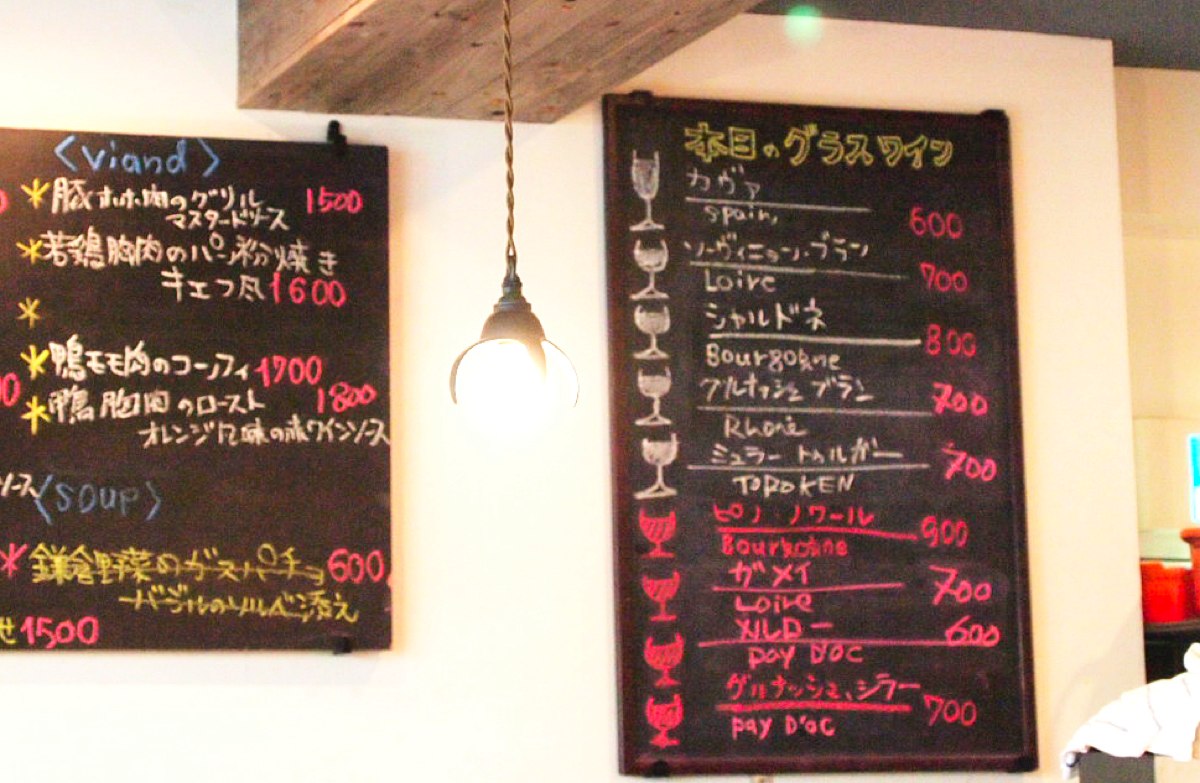 <viand>
豚ホホ肉のグリル 1500
マスタードソース
若鶏胸肉のパン粉焼き
キエフ風 1600
鴨モモ肉のコンフィ 1700
鴨胸肉のロースト 1800
オレンジ風味の赤ワインソース
ソース
<soup>
鎌倉野菜のガスパチョ 600
バジルのソルベ添え
せ 1500
本日のグラスワイン
カヴァ
spain, 600
ソーヴィニョン・ブラン
Loire 700
シャルドネ
Bourgogne 800
グルナッシュ ブラン
Rhone 700
ミュラー トゥルガー
TOROKEN 700
ピノ・ノワール
Bourgogne 900
ガメイ
Loire 700
メルロー 600
pay D'oc
グルナッシュ、シラー
pay D'oc 700